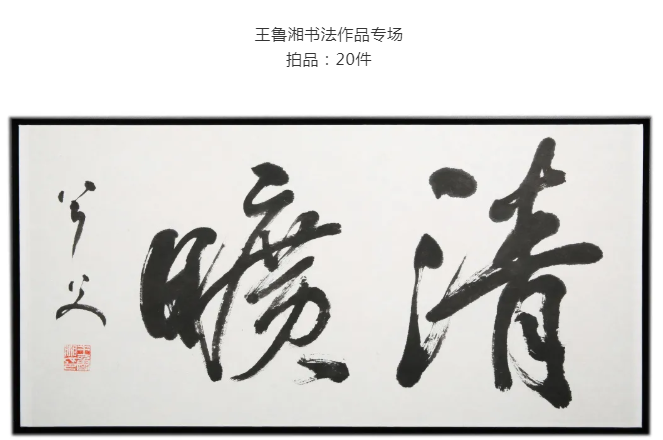 王鲁湘书法作品专场
拍品：20件
清曠